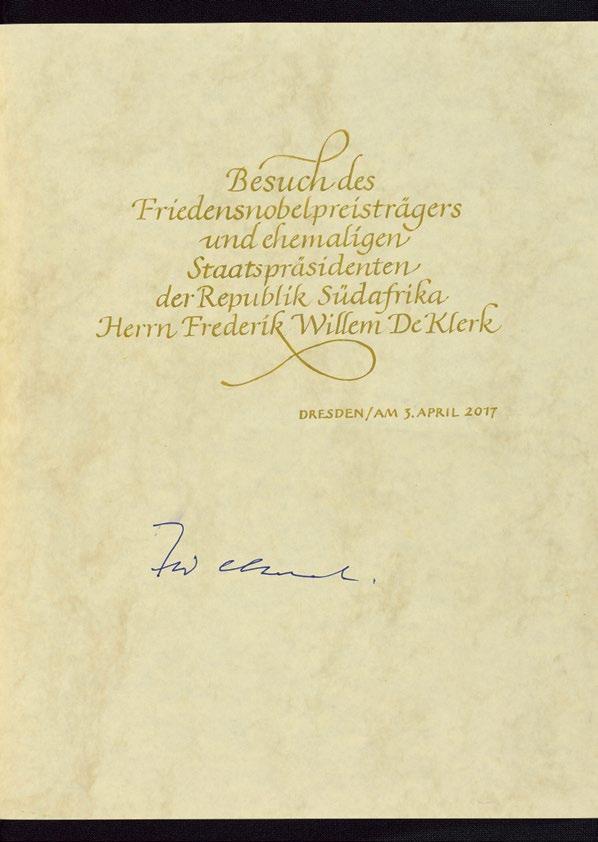 Besuch des
Friedensnobelpreisträgers
und ehemaligen
Staatspräsidenten
der Republik Südafrika
Herrn Frederik Willem De Klerk
DRESDEN/AM 3. APRIL 2017